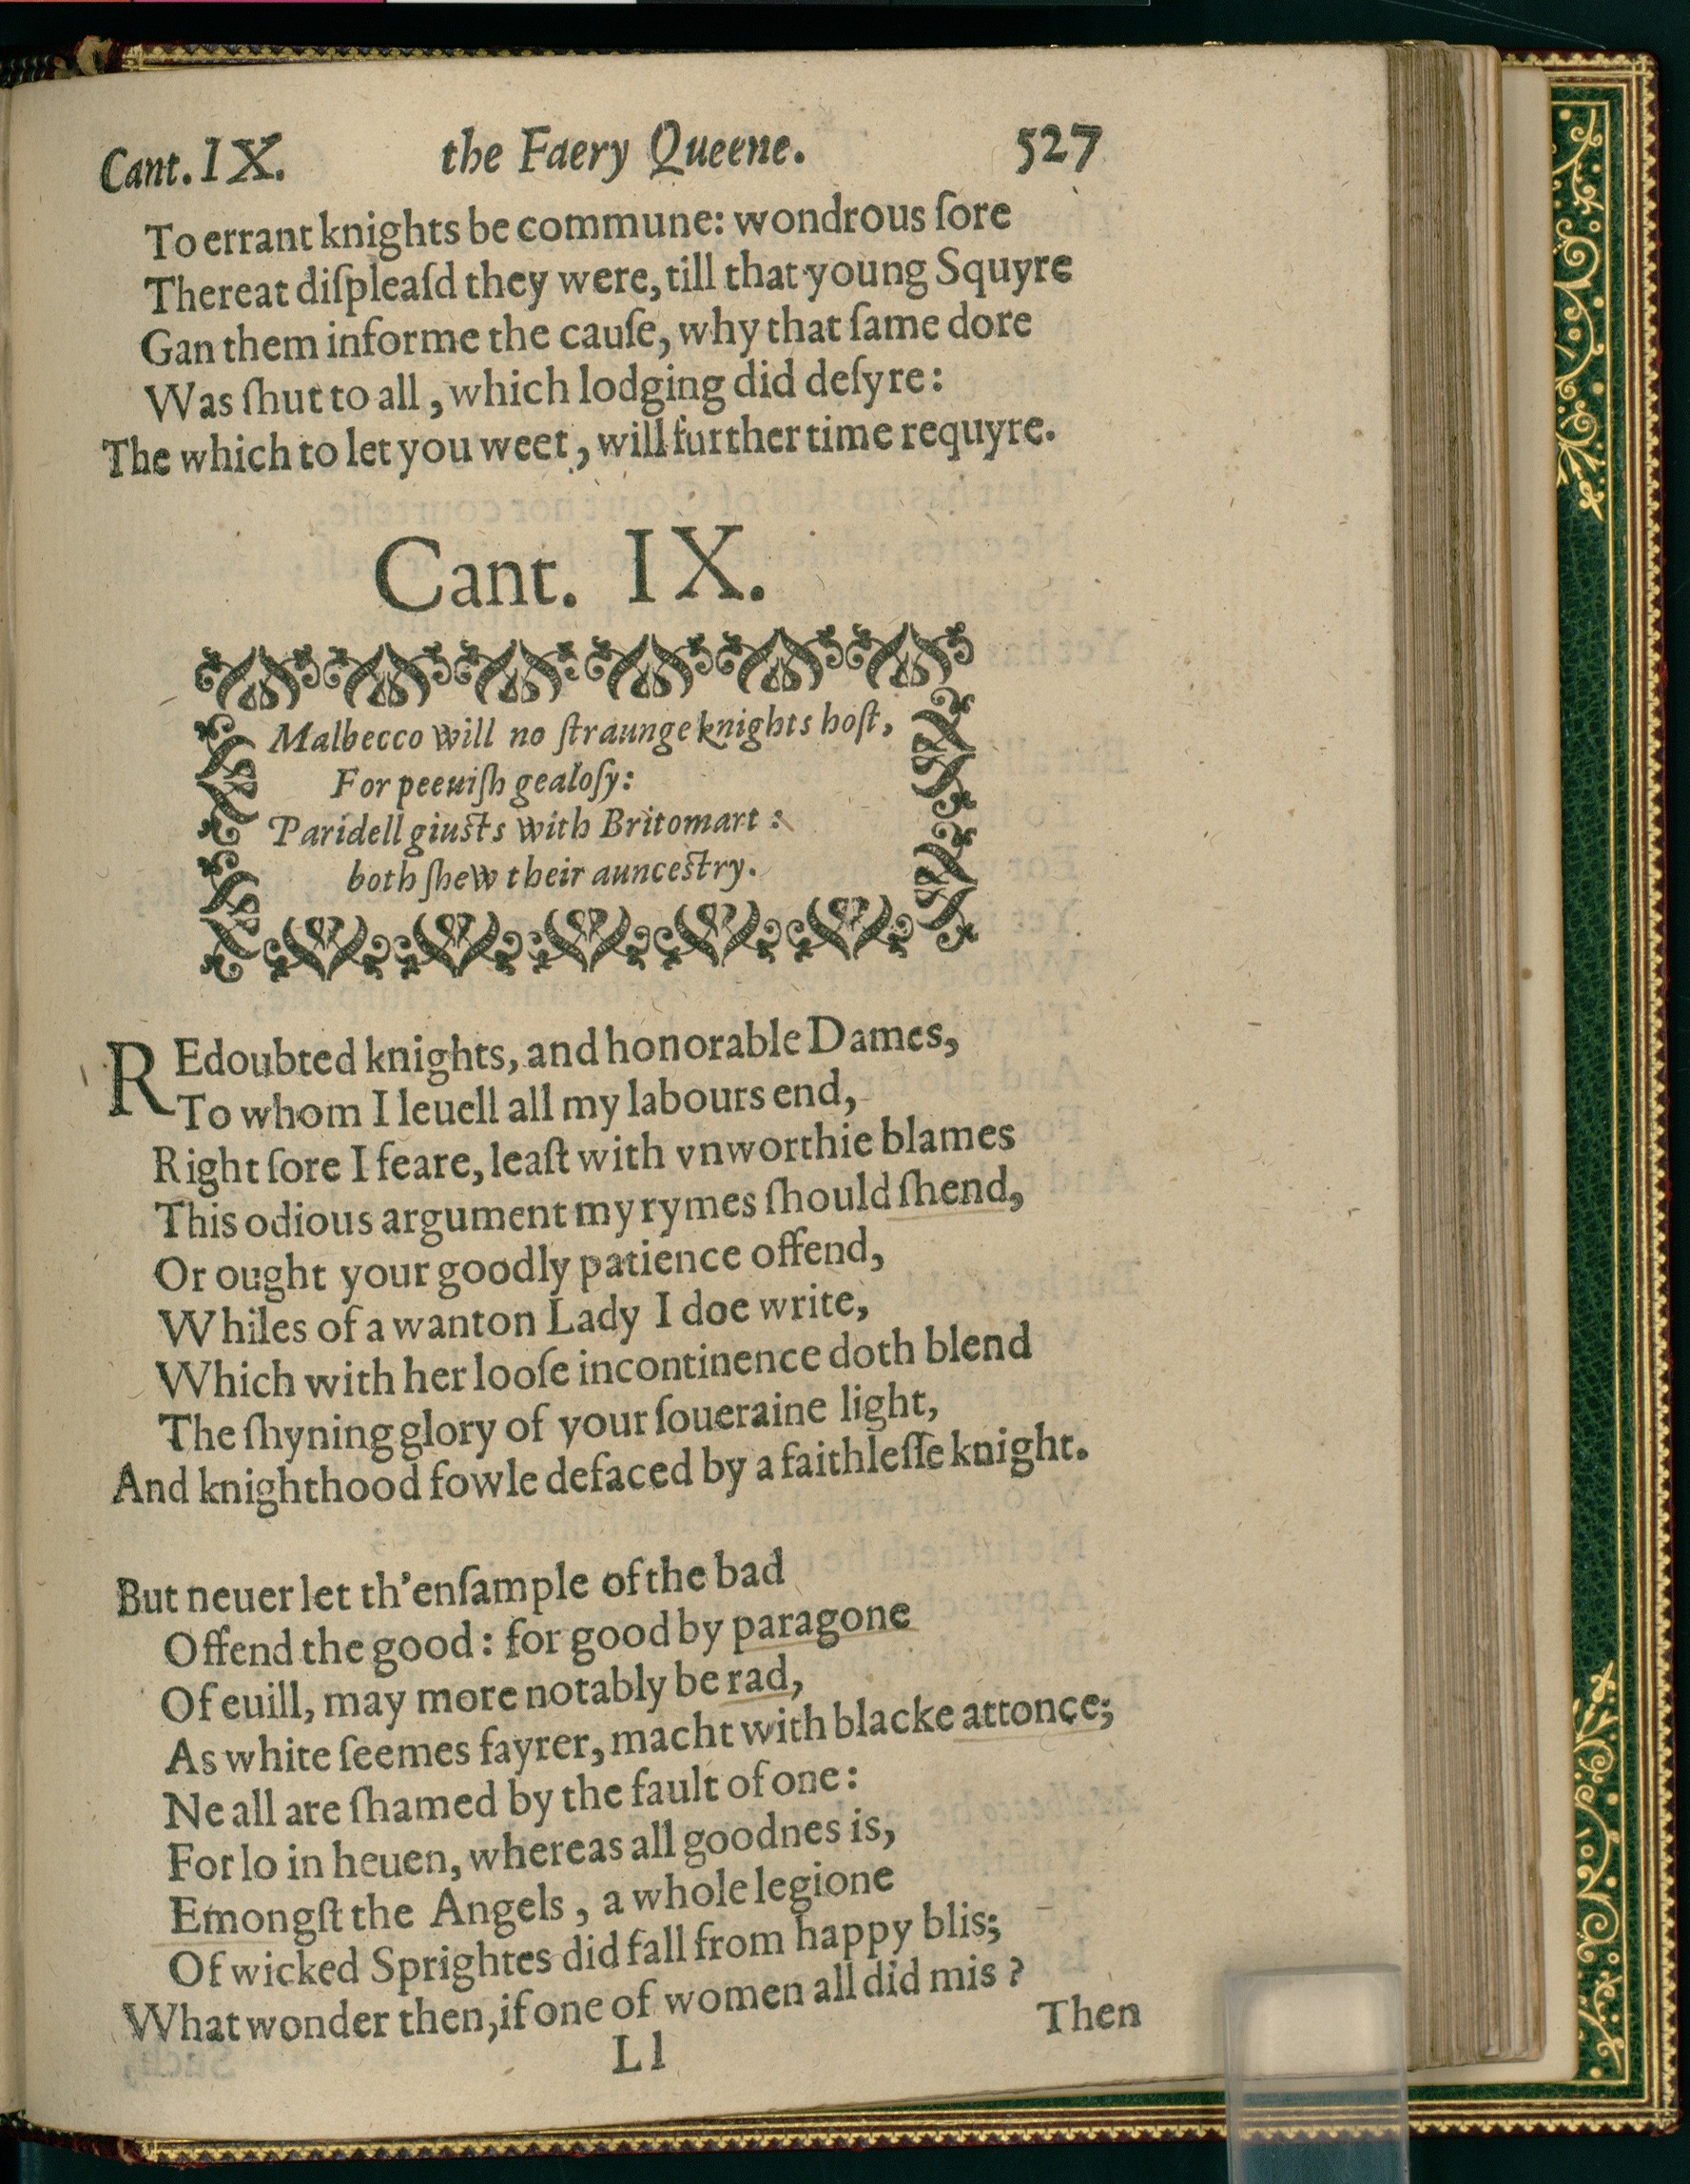 Cant. IX. the Faery Queene. 527
To errant knights be commune: wondrous ſore
Thereat diſpleaſd they were, till that young Squyre
Gan them informe the cauſe, why that ſame dore
Was ſhut to all, which lodging did deſyre:
The which to let you weet, will further time requyre.
Cant. IX.
Malbecco will no ſtraunge knights hoſt,
For peeuiſh gealoſy:
Paridell giuſts with Britomart:
both ſhew their aunceſtry.
REdoubted knights, and honorable Dames,
To whom I leuell all my labours end,
Right ſore I feare, leaſt with vnworthie blames
This odious argument my rymes ſhould ſhend,
Or ought your goodly patience offend,
Whiles of a wanton Lady I doe write,
Which with her looſe incontinence doth blend
The ſhyning glory of your ſoueraine light,
And knighthood fowle defaced by a faithleſſe knight.
But neuer let th'enſample of the bad
Offend the good: for good by paragone
Of euill, may more notably be rad,
As white ſeemes fayrer, macht with blacke attonce;
Ne all are ſhamed by the fault of one:
For lo in heuen, whereas all goodnes is,
Emongſt the Angels, a whole legione
Of wicked Sprightes did fall from happy blis;
What wonder then, if one of women all did mis?
Ll Then